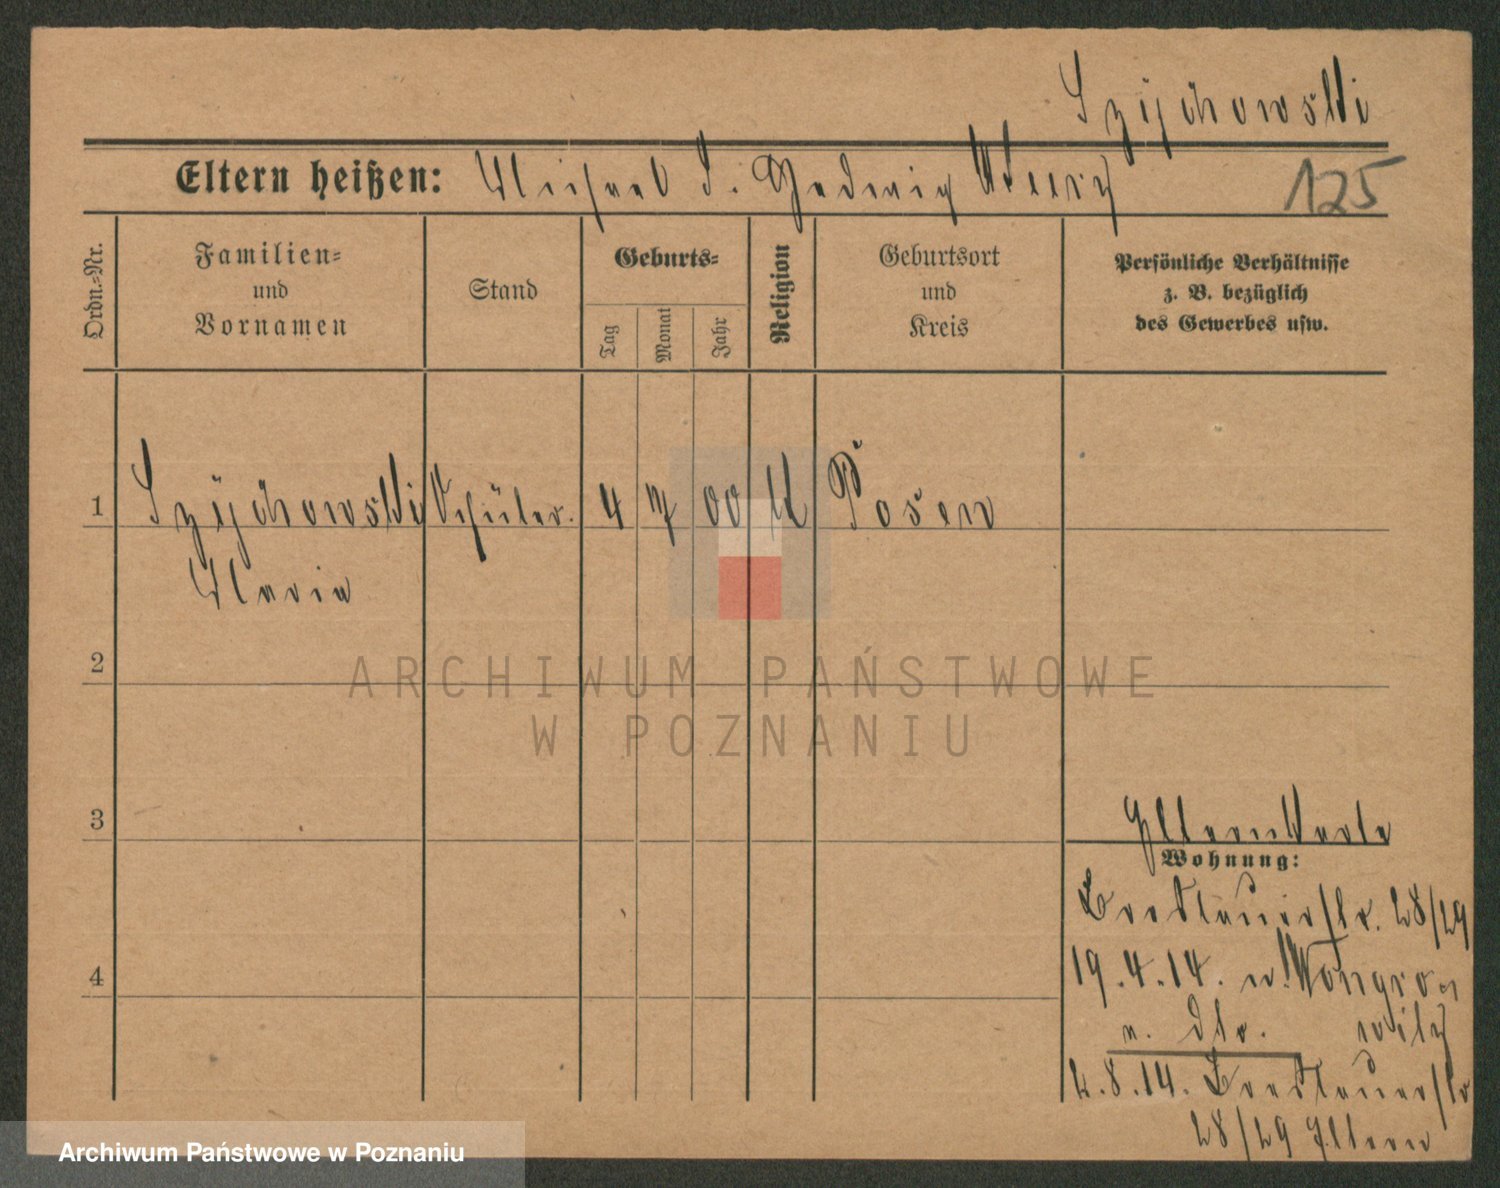 Szijchowski
Eltern heißen: Michael S. Hedwig
125
Ordn.=Nr.
Familien=
und
Vornamen
Stand
Geburts=
Tag
Monat
Jahr
Religion
Geburtsort
und
Kreis
Persönliche Verhältnisse
z. B. bezüglich
des Gewerbes usw.
1 Szijchowski Schüler. 4 7 00 K Posen
Maria
2
ARCHIWUM PAŃSTWOWE
W POZNANIU
3
Elternkarte
Wohnung:
Breslauerstr. 28/29
4
19.4.14. n. Wongro-
n. dtr. witz
4.8.14. Breslauerstr
28/29 Eltern
Archiwum Państwowe w Poznaniu